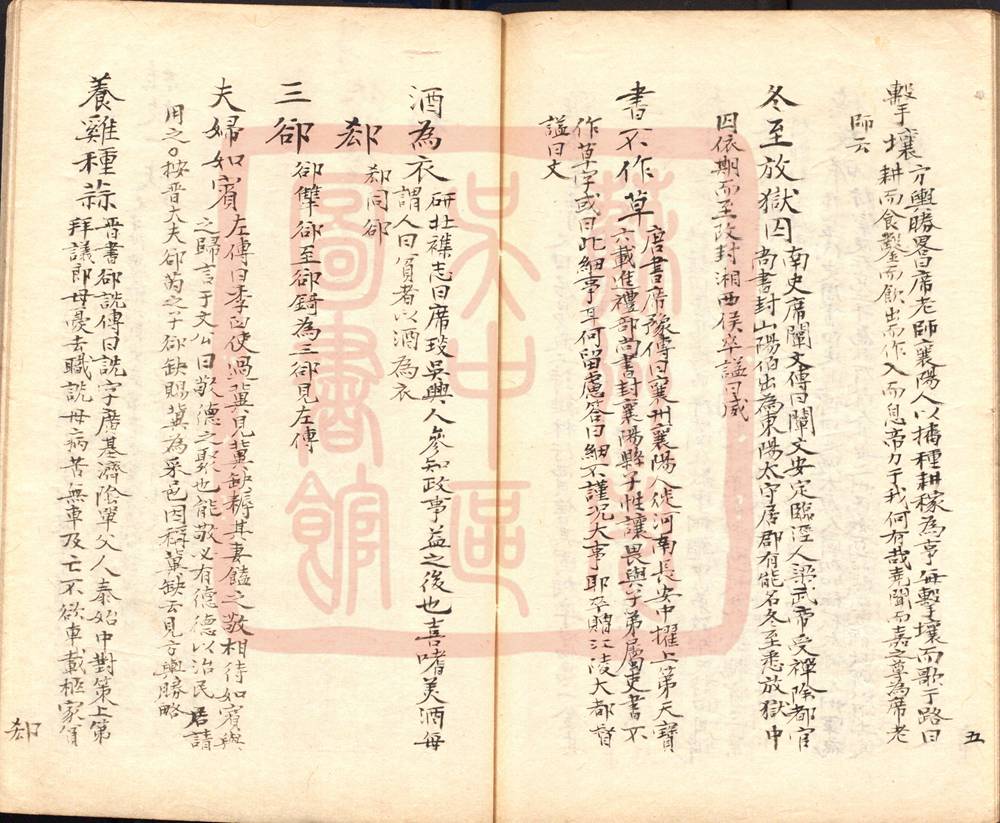 擊壤 方輿勝畧曰席老師襄陽人以播種耕稼為亨每擊壤而歌于路曰
耕而食鑿而飲出而作入而息帝力于我何有哉堯聞而嘉之尊為席老
師云
冬至放獄囚 南史席闡文傳曰闡文安定臨涇人梁武帝受禪除都官
尚書封山陽伯出為東陽太守居郡有能名冬至悉放獄中
囚依期而至改封湘西侯卒謚曰威
書不作草 唐書席豫傳曰襄州襄陽人徙河南長安中擢上第天寶
六載進禮部尚書封襄陽縣子性謹畏與子弟屬吏書不
作草字或曰此細事耳何留慮答曰細不謹况大事耶卒贈江陵大都督
謚曰文
酒為衣 研北襍志曰席琰吳興人參知政事益之後也喜嗜美酒每
謂人曰貧者以酒為衣
郄 郄同郤
三郤 郤犨郤至郤錡為三郤見左傳
夫婦如賓 左傳曰季臼使過冀見冀缺耨其妻饁之敬相待如賓與
之歸言于文公曰敬德之聚也能敬必有德德以治民君請
用之○按晉大夫郤芮之子郤缺賜冀為采邑因稱冀缺云見方輿勝略
養雞種蒜 晋書郤詵傳曰詵字廣基濟陰單父人泰始中對策上第
拜議郎母憂去職詵母病苦無車及亡不欲車載柩家貧
郄
五
吳中區
圖書館